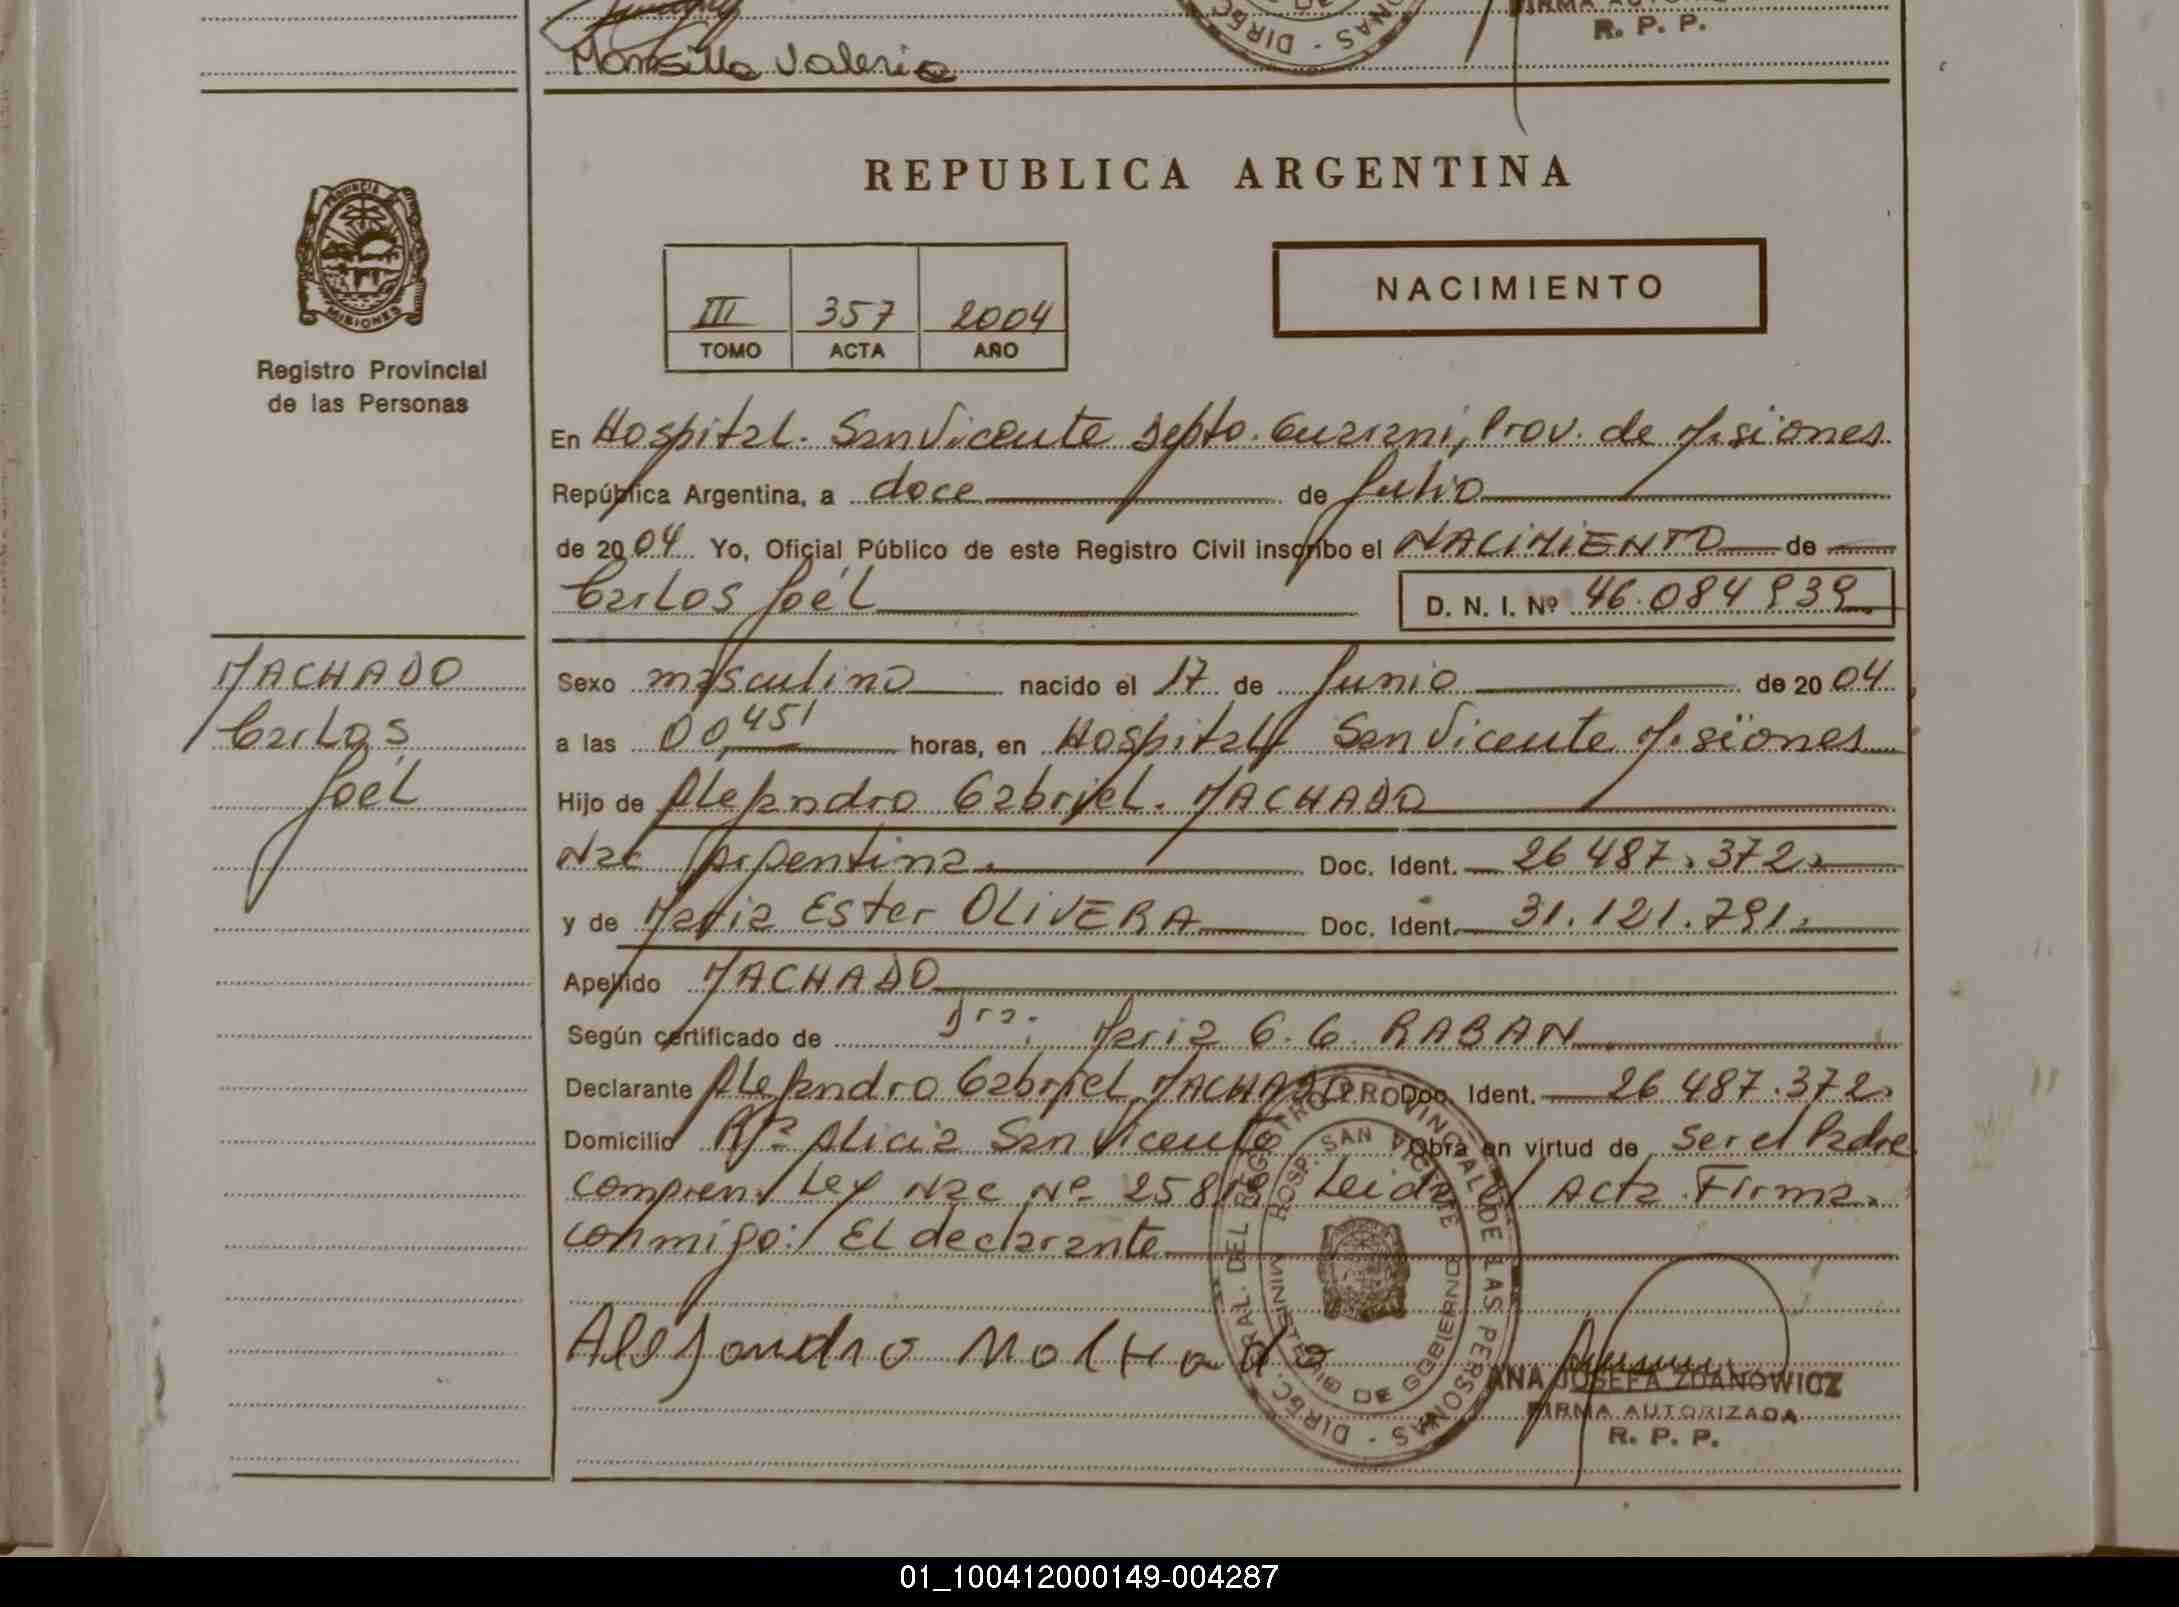 Mansilla Valeria
FIRMA AUTORIZADA
R. P. P.
REPUBLICA ARGENTINA
PROVINCIA
MISIONES
Registro Provincial
de las Personas
III 357 2004
TOMO ACTA AÑO
NACIMIENTO
En Hospital. San Vicente Depto. Guarani, Prov. de Misiones
República Argentina, a doce de Julio
de 2004 Yo, Oficial Público de este Registro Civil inscribo el NACIMIENTO de
Carlos Joél D. N. I. Nº 46.084939
MACHADO
Carlos
Joél
Sexo masculino nacido el 17 de Junio de 2004
a las 00,45' horas, en Hospital San Vicente Misiones
Hijo de Alejandro Gabriel. MACHADO
Nac Argentina. Doc. Ident. 26487.372.
y de Maria Ester OLIVERA Doc. Ident. 31.121.791.
Apellido MACHADO
Según certificado de Dra: Maria G. G. RABAN
Declarante Alejandro Gabriel MACHADO Doc. Ident. 26487.372.
Domicilio Bº Alicia San Vicente Obra en virtud de Ser el Padre
Ley Nac Nº Leida el Acta. Firma.
conmigo: El declarante
DIRGC. GRAL. DEL REGISTRO PROVINCIAL DE LAS PERSONAS
HOSP. SAN VICENTE
MINISTERIO DE GOBIERNO
Alejandro Machado
ANA JOSEFA ZDANOWICZ
FIRMA AUTORIZADA
R. P. P.
01_100412000149-004287